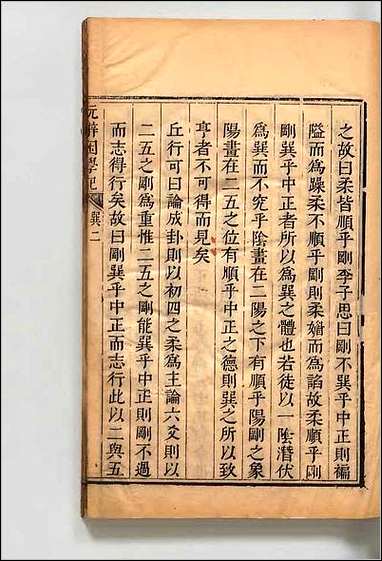 之故曰柔皆順乎剛李子思曰剛不巽乎中正則褊
隘而爲躁柔不順乎剛則柔媚而爲諂故柔順乎剛
剛巽乎中正者所以爲巽之體也若徒以一陰潛伏
爲巽而不究乎陰畫在二陽之下有順乎陽剛之象
陽畫在二五之位有順乎中正之德則巽之所以致
亨者不可得而見矣
丘行可曰論成卦則以初四之柔爲主論六爻則以
二五之剛爲重惟二五之剛能巽乎中正則剛不過
而志得行矣故曰剛巽乎中正而志行此以二與五
玩辭困學記
巽二